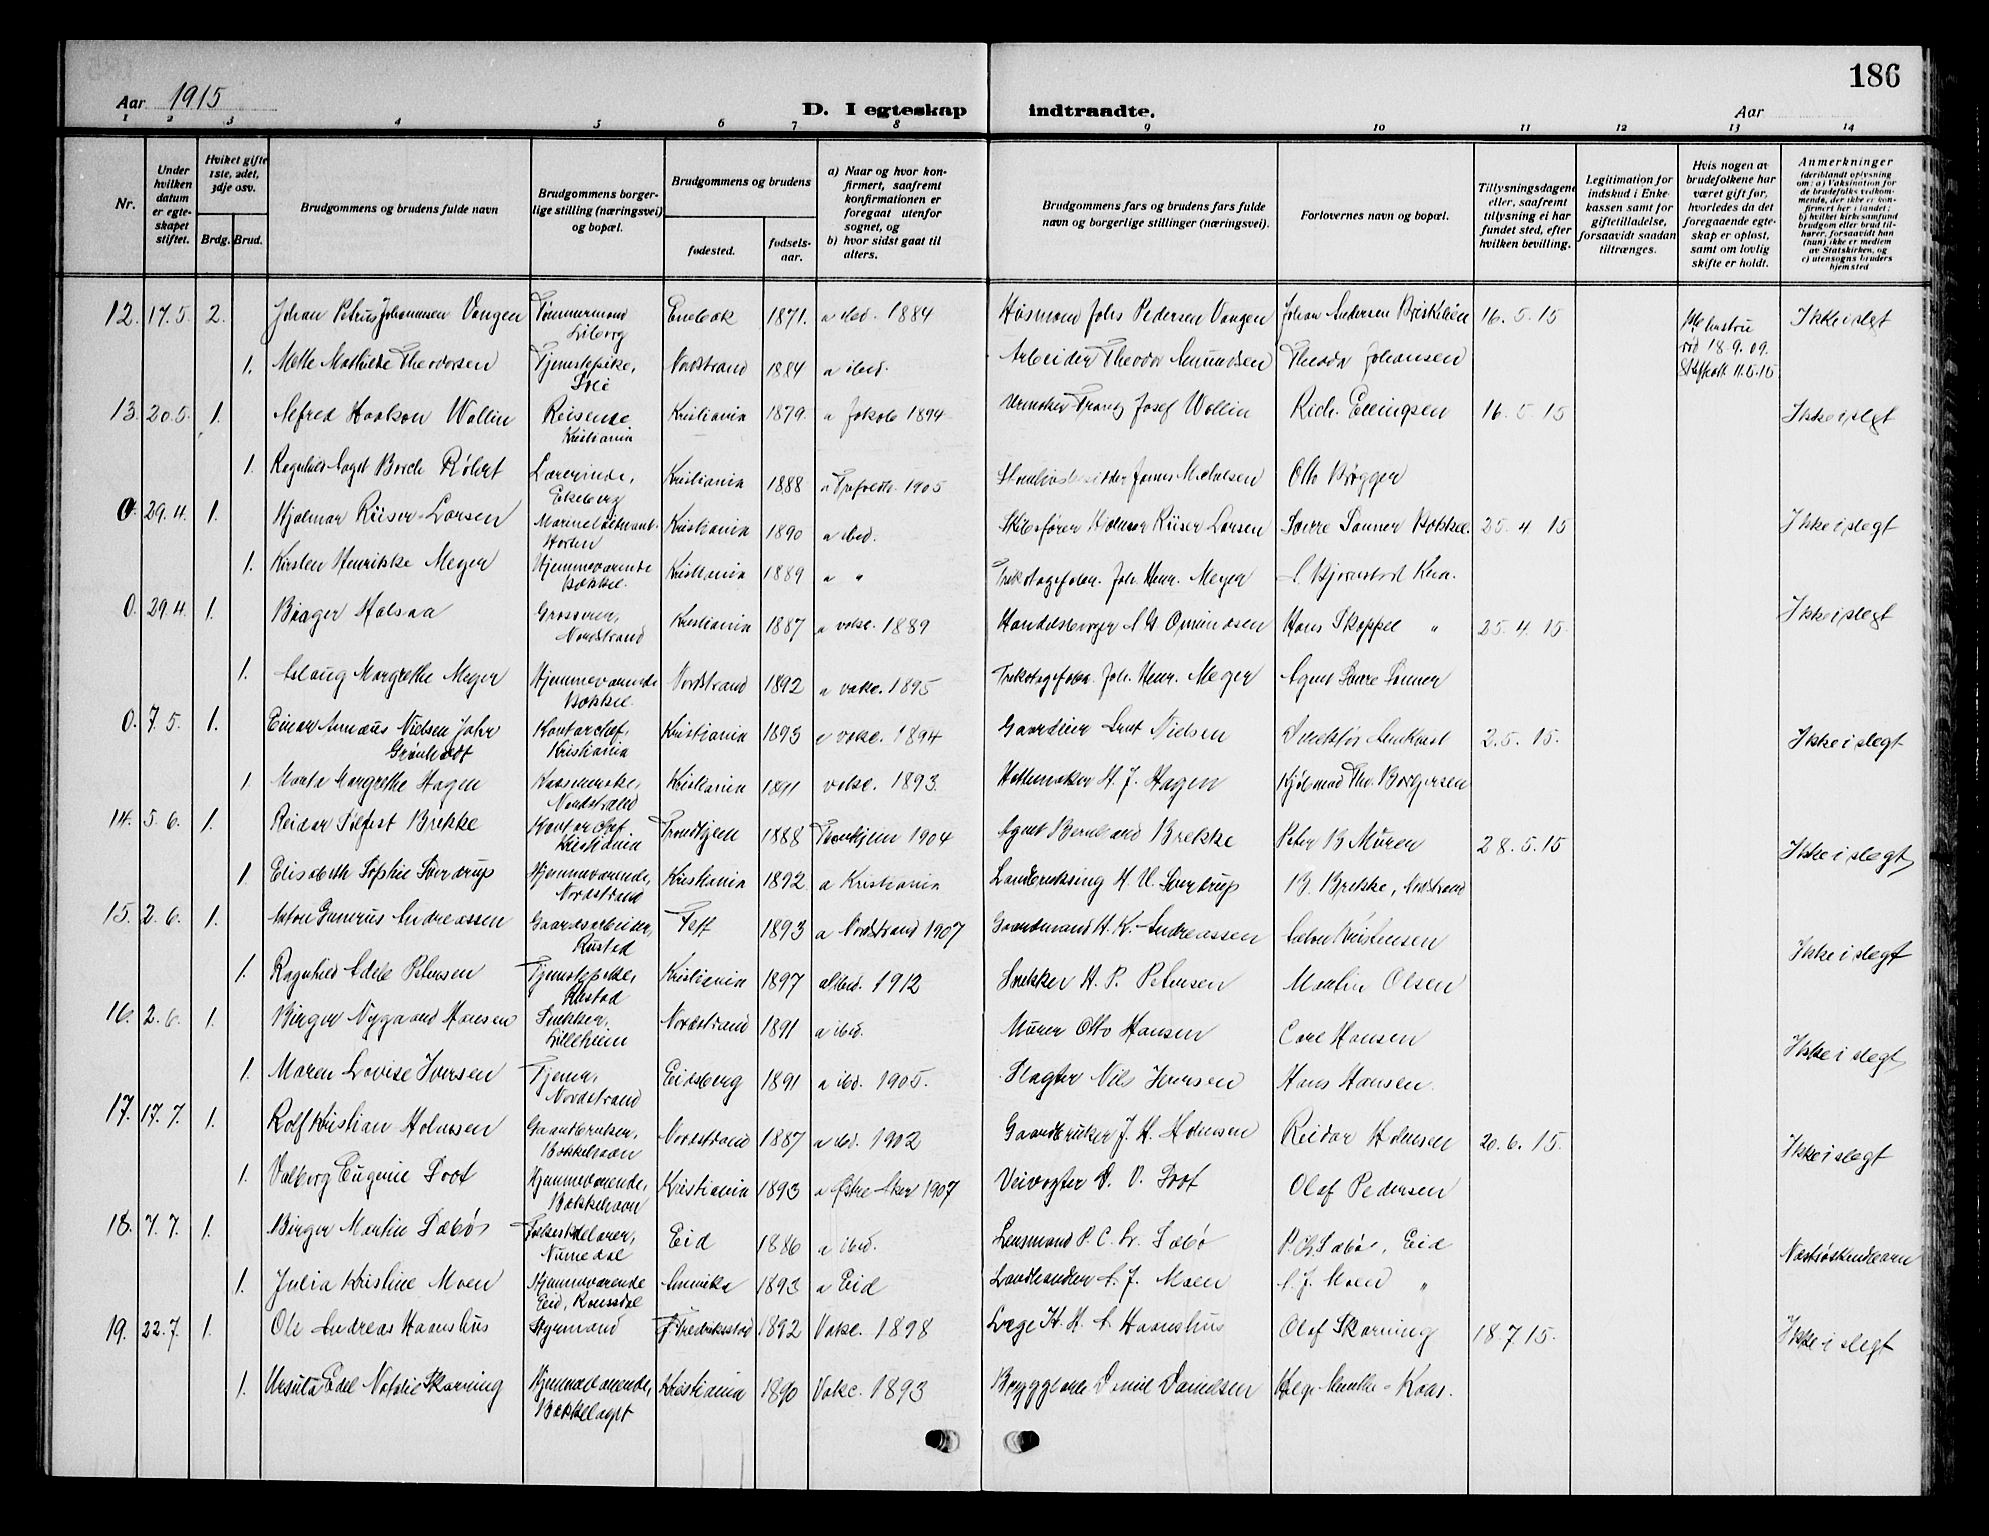 186
Aar 1915
D. I egteskap indtraadte.
Aar
1 2 3 4 5 6 7 8 9 10 11 12 13 14
Nr.
Under hvilken datum er egteskapet stiftet.
Hviket gifte 1ste, 2det, 3dje osv.
Brdg. Brud.
Brudgommens og brudens fulde navn
Brudgommens borgerlige stilling (næringsvei) og bopæl.
Brudgommens og brudens
fødested.
fødselsaar.
a) Naar og hvor konfirmert, saafremt konfirmationen er foregaat utenfor sognet, og
b) hvor sidst gaat til alters.
Brudgommens fars og brudens fars fulde navn og borgerlige stillinger (næringsvei).
Forlovernes navn og bopæl.
Tillysningsdagene eller, saafremt tillysning ei har fundet sted, efter hvilken bevilling.
Legitimation for indskud i Enkekassen samt for giftetilladelse, forsaavidt saadan tiltrænges.
Hvis nogen av brudefolkene har været gift før, hvorledes da det foregaaende egteskap er opløst, samt om lovlig skifte er holdt.
Anmerkninger (deriblandt oplysning om: a) Vaksination for de brudefolks vedkommende, der ikke er konfirmert her i landet; b) hvilket kirkesamfund brudgom eller brud tilhører, forsaavidt han (hun) ikke er medlem av Statskirken, og c) utensogns bruders hjemsted
12. 17.5. 2. Johan Petrus Johannesen Vangen Tømmermand Liborg Enebak 1871. a ibd. 1884 Husmand Johs Pedersen Vangen Johan Andersen 16.5.15 18.9.09. Ikke i slegt
1. Mette Mathilde Theodorsen Tjenestepike, Nordstrand 1884 a ibid. Arbeider Theodor Amundsen Theodor Johansen
13. 20.5. 1. Alfred Haakon Wollin Reisende Kristiania Kristiania 1879. a Jakob 1894 Urmaker Frantz Josef Wollin Rich. Ellingsen 16.5.15 Ikke i slegt
1. Ragnhild Aagot Borch Lærerinde, Ekeberg Kristiania 1888 1905 Otto Brøgger
0. 29.4. 1. Hjalmar Riiser-Larsen Horten Kristiania 1890 a ibid. Skibsfører Hjalmar Riiser Larsen Sverre Sanner Bækkel. 25.4.15 Ikke i slegt
1. Kirsten Henrikke Meyer Hjemmeværende Bækkel. Kristiania 1889 a " Joh. Henr. Meyer
0. 29.4. 1. Birger Grosserer, Nordstrand Kristiania 1887 a vakc. 1889 Handelsborger Omundsen Hans Skappel " 25.4.15. Ikke i slegt
1. Aslaug Margrethe Meyer Hjemmeværende Bækkel. Nordstrand 1892 a vakc. 1895 Joh. Henr. Meyer Agnes Sverre Sanner
0. 7.5. 1. Einar Nielsen Kontorchef, Kristiania Kristiania 1893 a vakc. 1894 Gaardeier Nielsen 2.5.15. Ikke i slegt
1. Marta Margrethe Hagen Nordstrand Kristiania 1891 vakc. 1893. Hattemaker H. J. Hagen Kjøbmand Thv. Borgersen
14. 5.6. 1. Reidar Brekke Kontorchef Kristiania Trondhjem 1888 Trondhjem 1904 Agent Brekke Peter B Muren 28.5.15 Ikke i slegt
1. Elisabeth Sophie Sverdrup Hjemmeværende, Nordstrand Kristiania 1892 a Kristiania H. U. Sverdrup B. Brekke, Nordstrand
15. 2.6. 1. Anton Gunerus Andreassen Gaardsarbeider, Rustad Tett 1893 a Nordstrand 1907 Gaardmand H. K. Andreassen Anton Kristensen Ikke i slegt
1. Ragnhild Adele Petersen Tjenestepike, Rustad Kristiania 1897 a ibid. 1912 Snekker H. P. Petersen Martin Olsen
16. 2.6. 1. Birger Nygaard Hansen Snekker, Lilleheim Nordstrand 1891 a ibid. Murer Otto Hansen Carl Hansen Ikke i slegt
1. Maren Lovise Iversen Tjener, Nordstrand Eidsberg 1891 a ibd. 1905. Slagter Nils Iversen Hans Hansen.
17. 17.7. 1. Rolf Kristian Holmsen Gaardbruker, Nordstrand 1887 a ibd. 1902 Gaardbruker J. H. Holmsen Reidar Holmsen 20.6.15. Ikke i slegt
1. Valborg Eugenie Soot Hjemmeværende, Kristiania 1893 a Østre Aker 1907 Veivogter Soot Olaf Pedersen
18. 7.7. 1. Birger Martin Sæbø Numedal Eid 1886 a ibid. Lensmand P. C. Sæbø P. Ch. Sæbø, Eid Næstsøskendebarn
1. Julia Kristine Moen Hjemmeværende Eid, Romsdal 1893 a Eid Landhandler A. J. Moen A. J. Moen "
19. 22.7. 1. Ole Andreas Haanshus Styrmand Fredriksstad 1892 Vakc. 1898 Læge H. H. A. Haanshus Olaf Skarning 18.7.15. Ikke i slegt
1. Ursula Edel Natalie Skarning Hjemmeværende, Bækkelaget Kristiania 1890 Vakc. 1893 Daniel Danielsen Helge Munthe-Kaas.